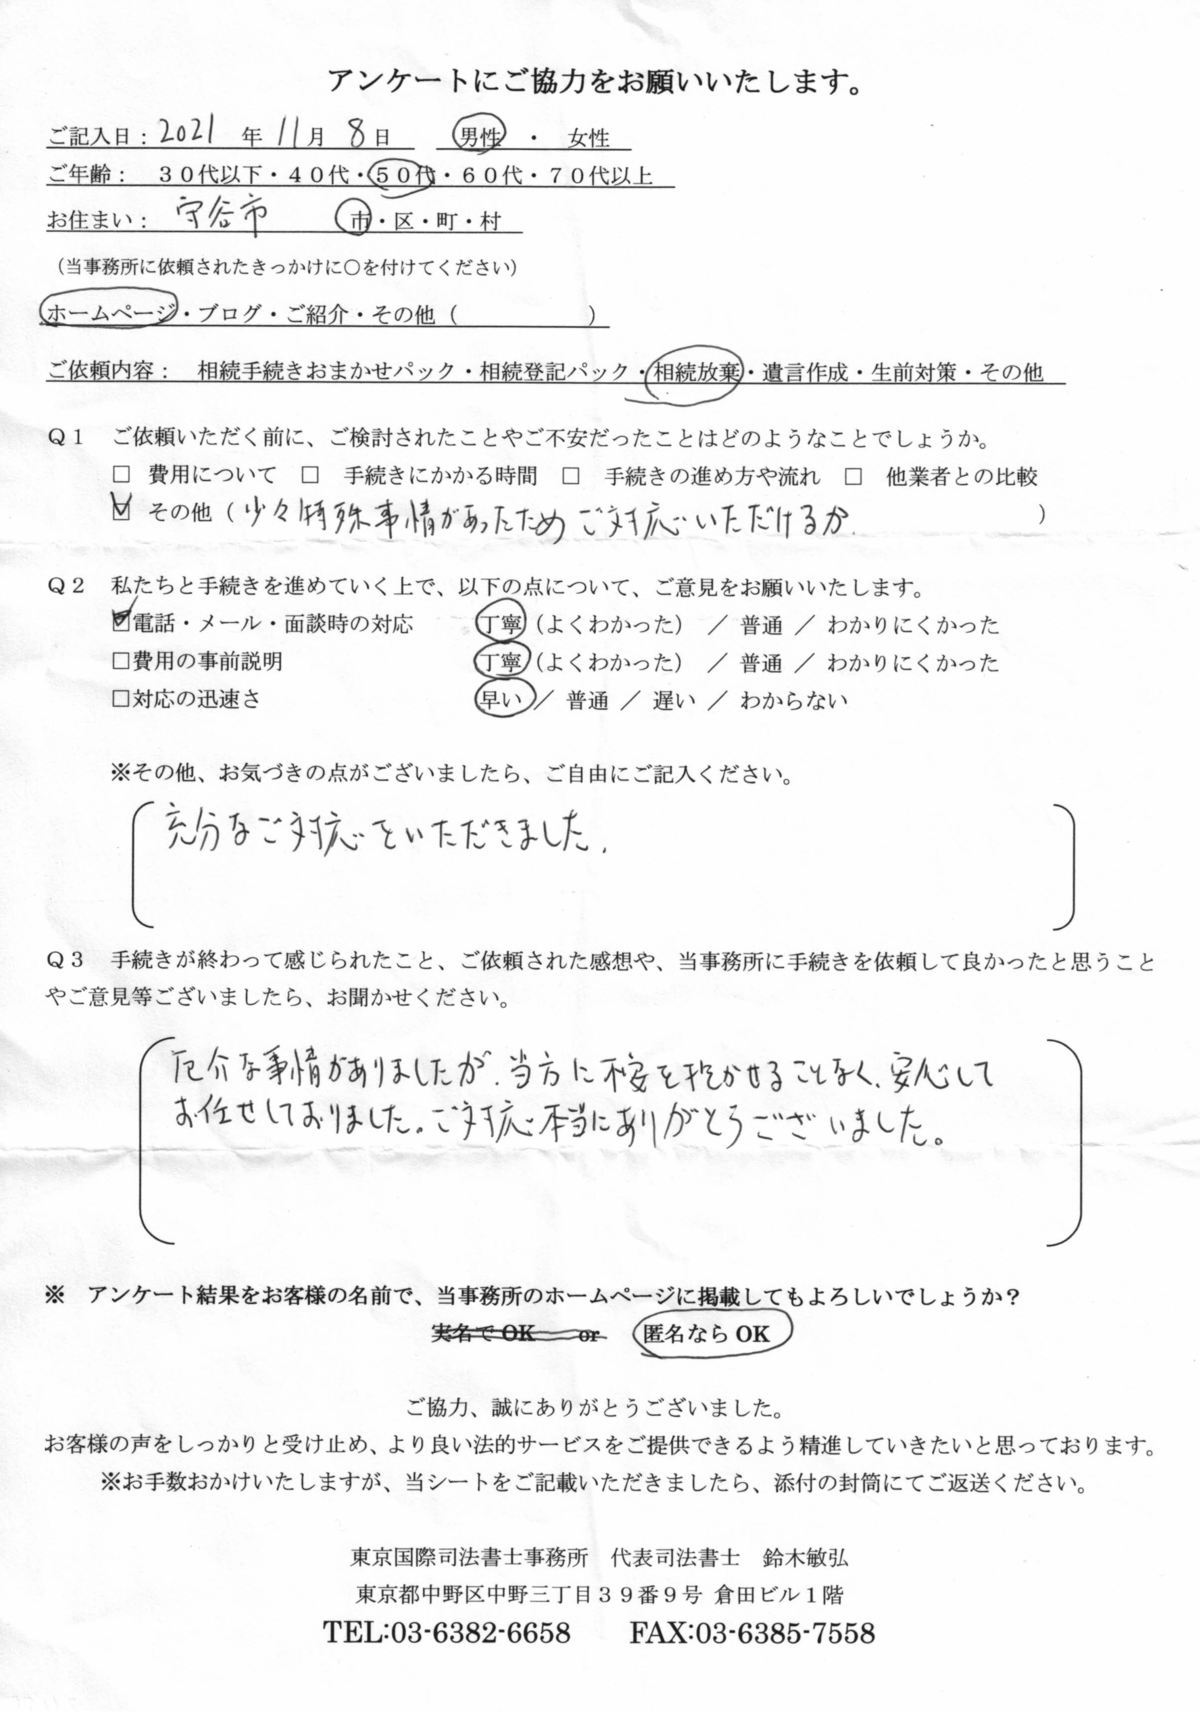 アンケートにご協力をお願いいたします。
ご記入日：2021 年 11月 8日　男性 ・ 女性
ご年齢： 30代以下・40代・50代・60代・70代以上
お住まい： 守谷市 市・区・町・村
（当事務所に依頼されたきっかけに○を付けてください）
ホームページ・ブログ・ご紹介・その他（　　　　　　）
ご依頼内容： 相続手続きおまかせパック・相続登記パック・相続放棄・遺言作成・生前対策・その他
Q1 ご依頼いただく前に、ご検討されたことやご不安だったことはどのようなことでしょうか。
□ 費用について □ 手続きにかかる時間 □ 手続きの進め方や流れ □ 他業者との比較
☑ その他（少々特殊事情があったためご対応いただけるか.　　　　）
Q2 私たちと手続きを進めていく上で、以下の点について、ご意見をお願いいたします。
☑電話・メール・面談時の対応 丁寧（よくわかった） ／ 普通 ／ わかりにくかった
□費用の事前説明 丁寧（よくわかった） ／ 普通 ／ わかりにくかった
□対応の迅速さ 早い ／ 普通 ／ 遅い ／ わからない
※その他、お気づきの点がございましたら、ご自由にご記入ください。
充分なご対応をいただきました.
Q3 手続きが終わって感じられたこと、ご依頼された感想や、当事務所に手続きを依頼して良かったと思うこと
やご意見等ございましたら、お聞かせください。
厄介な事情がありましたが、当方に不安を抱かせることなく、安心して
お任せしておりました。ご対応本当にありがとうございました。
※ アンケート結果をお客様の名前で、当事務所のホームページに掲載してもよろしいでしょうか？
実名で OK or 匿名なら OK
ご協力、誠にありがとうございました。
お客様の声をしっかりと受け止め、より良い法的サービスをご提供できるよう精進していきたいと思っております。
※お手数おかけいたしますが、当シートをご記載いただきましたら、添付の封筒にてご返送ください。
東京国際司法書士事務所 代表司法書士 鈴木敏弘
東京都中野区中野三丁目39番9号 倉田ビル1階
TEL:03-6382-6658 FAX:03-6385-7558